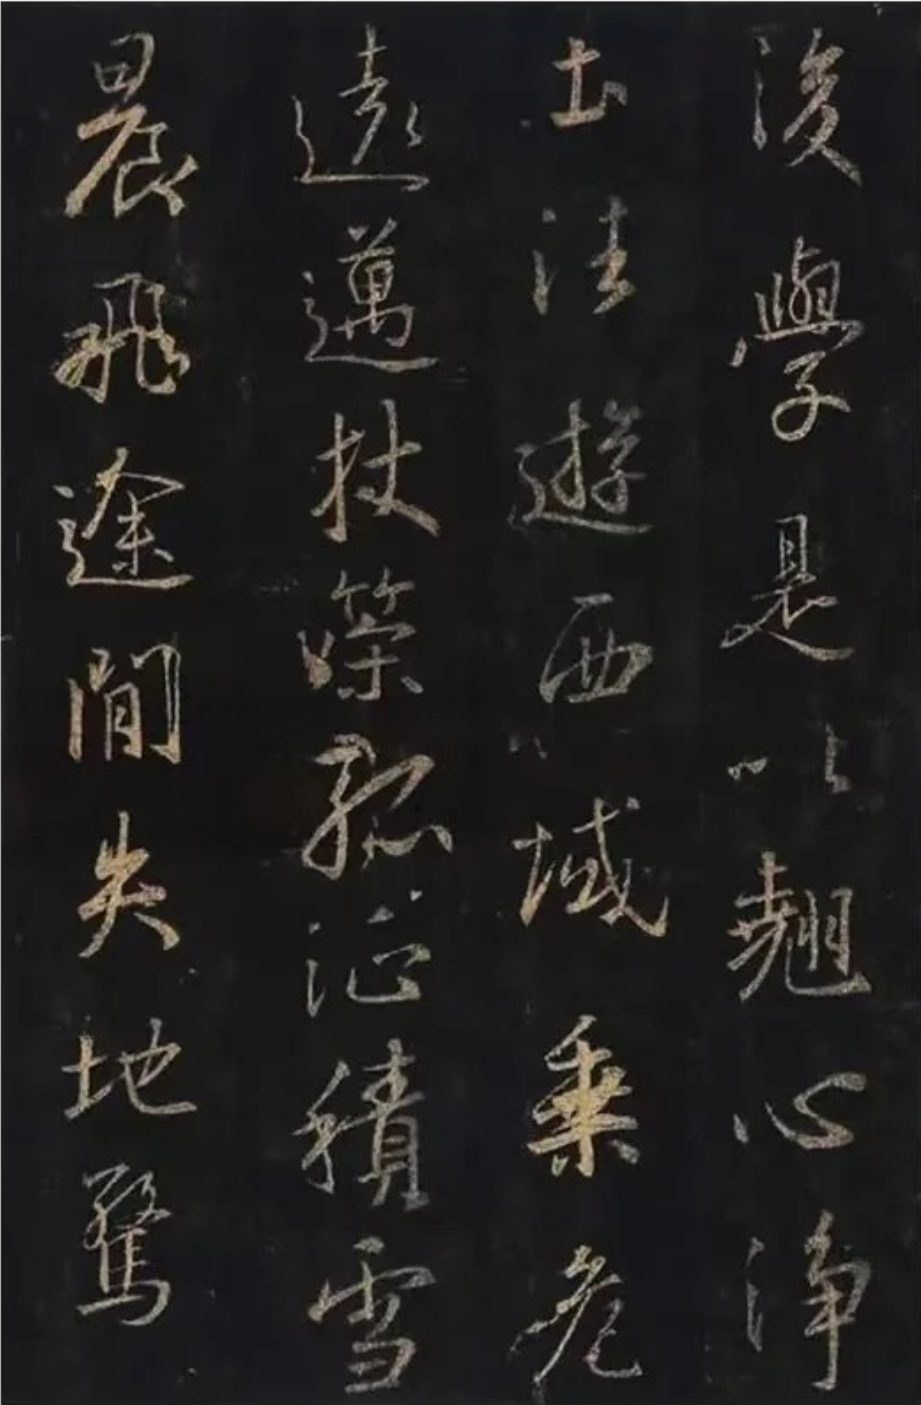 後學是以翹心淨
土法遊西域乘危
遠邁杖策孤征積雪
晨飛途閒失地驚